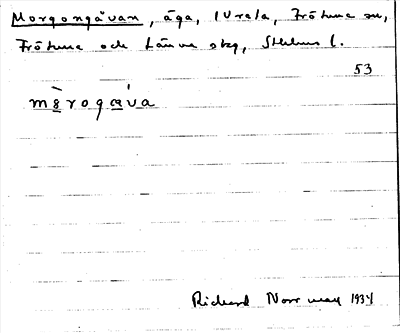 Morgongåvan, äga, 1 Vrela, Frötuna sn,
Frötuna och Länna skg, Sthlms l.
53
mòrogǽva
Richard Norr maj 1934